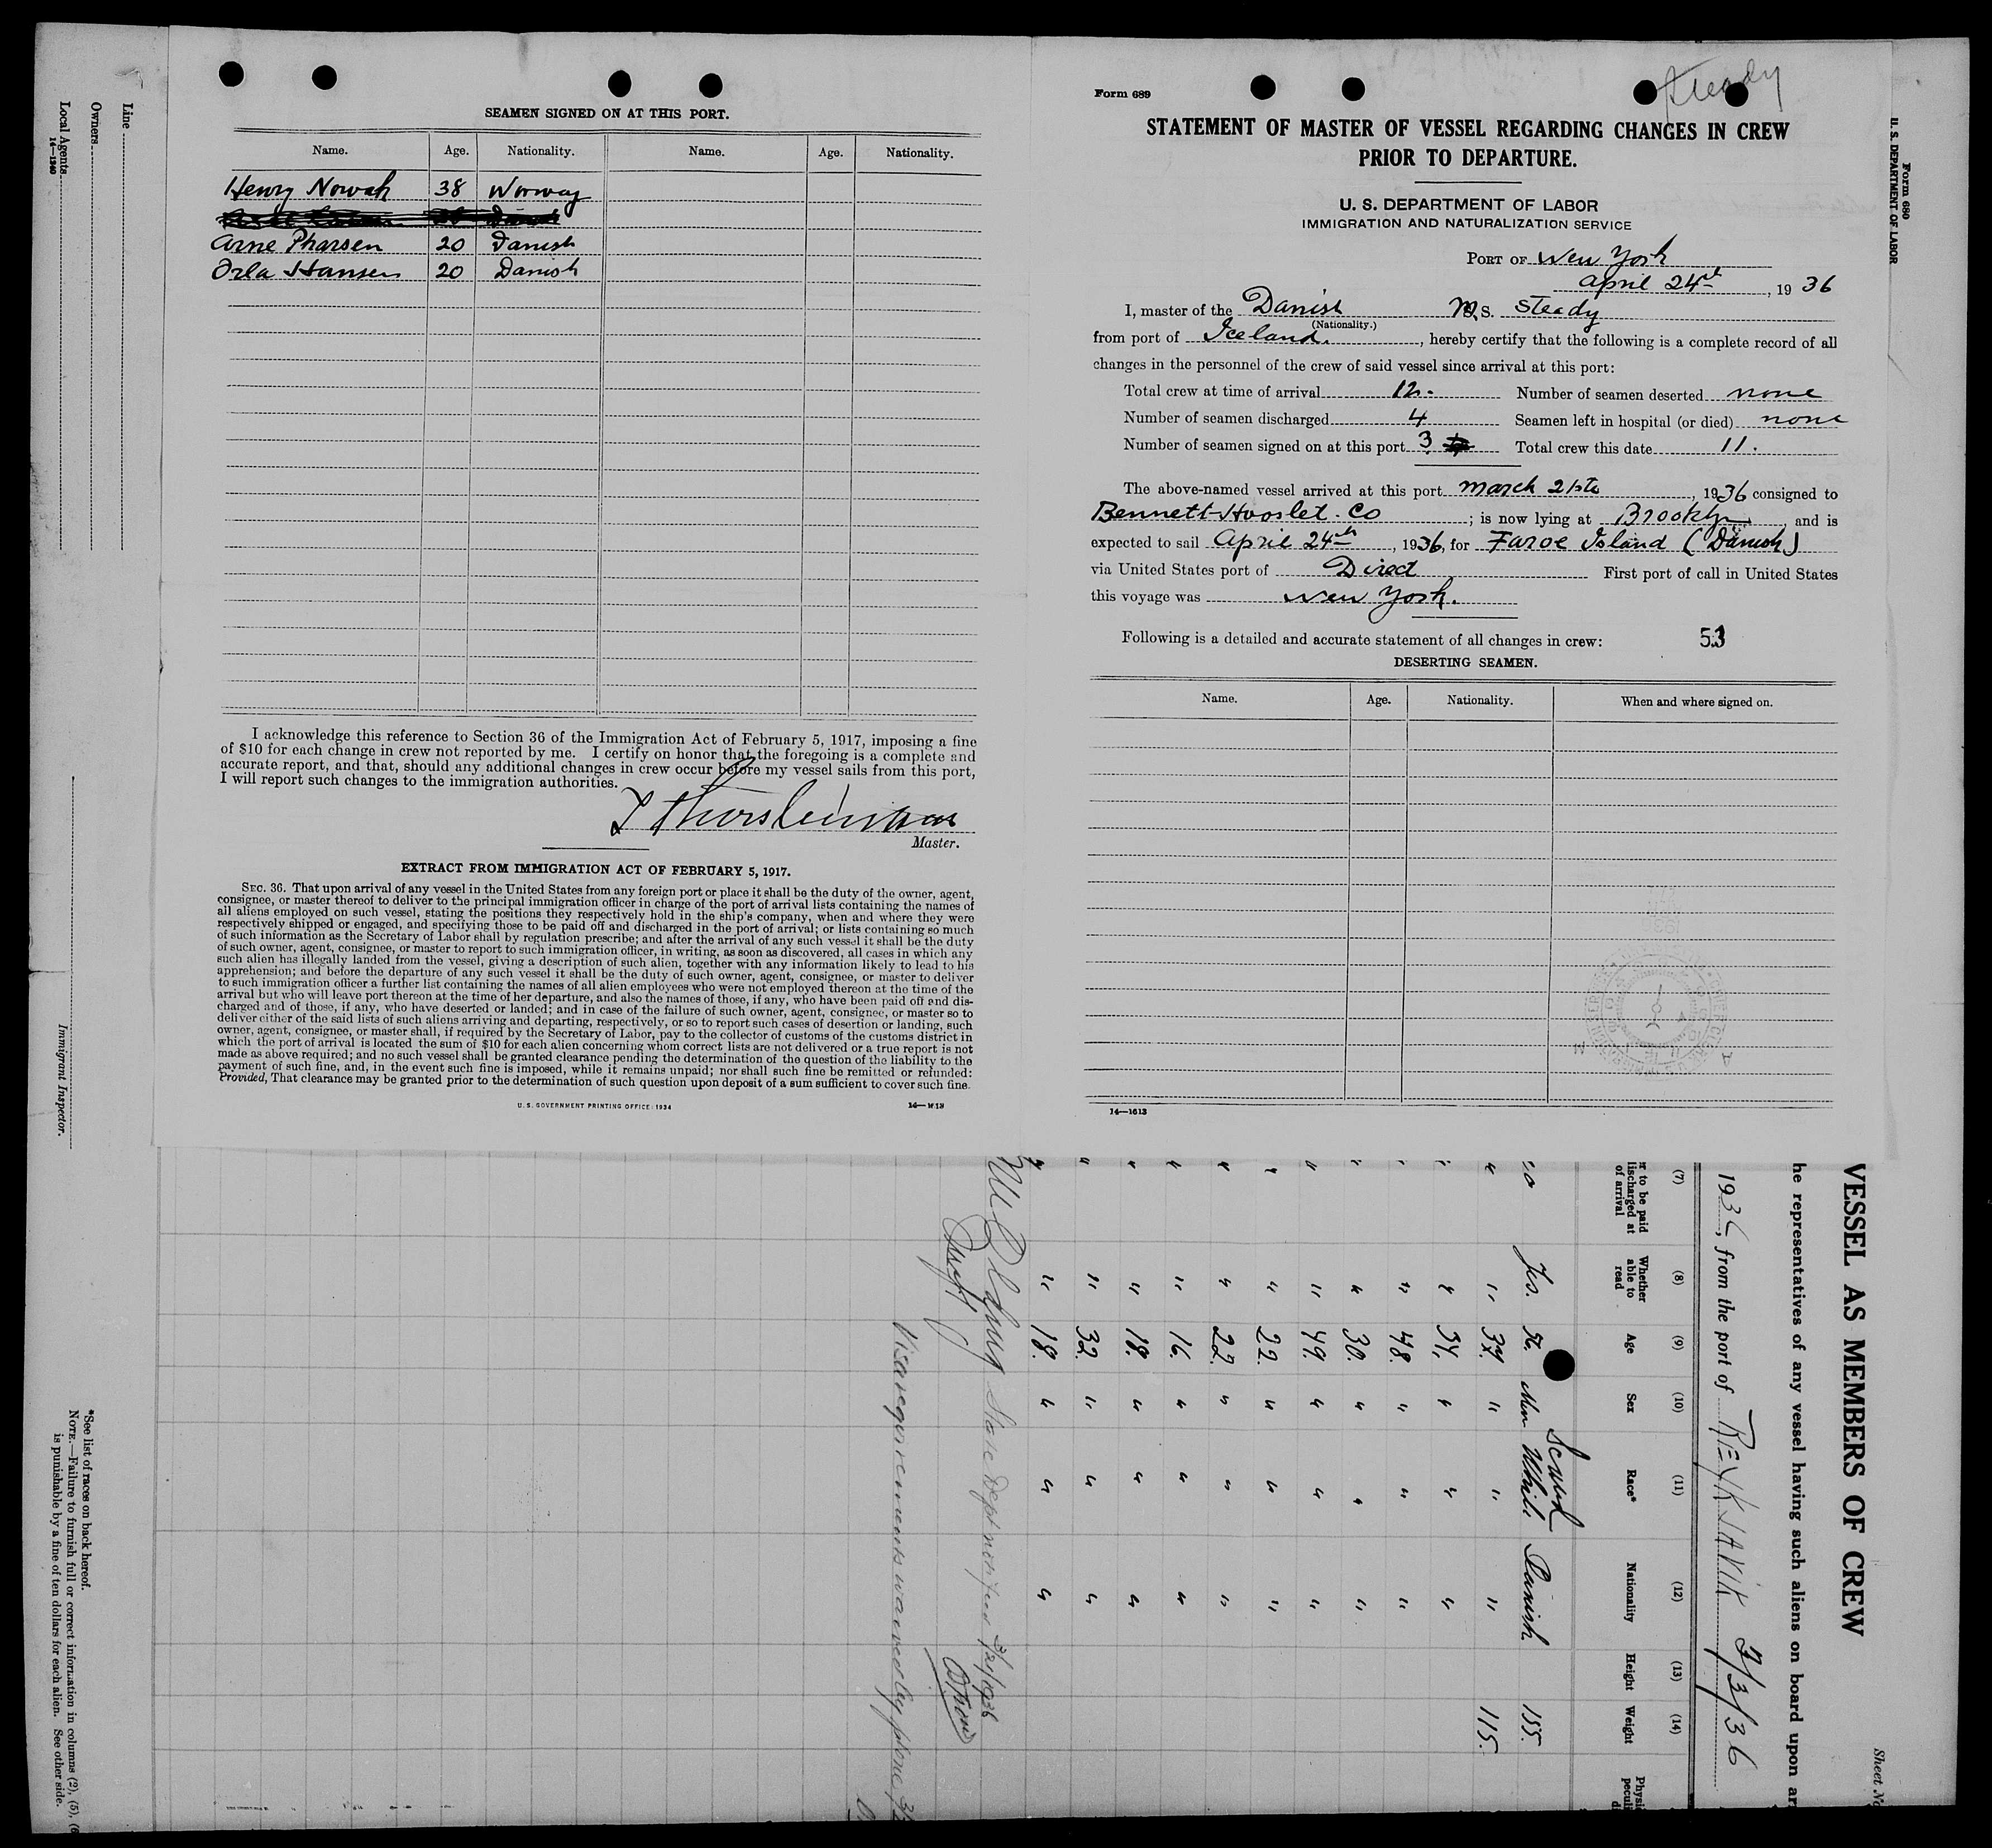 SEAMEN SIGNED ON AT THIS PORT.
Name. Age. Nationality. Name. Age. Nationality.
Henry Nowak 38 Norway
Arne Pharsen 20 Danish
Orla Hansen 20 Danish
I acknowledge this reference to Section 36 of the Immigration Act of February 5, 1917, imposing a fine
of $10 for each change in crew not reported by me. I certify on honor that the foregoing is a complete and
accurate report, and that, should any additional changes in crew occur before my vessel sails from this port,
I will report such changes to the immigration authorities.
Master.
EXTRACT FROM IMMIGRATION ACT OF FEBRUARY 5, 1917.
SEC. 36. That upon arrival of any vessel in the United States from any foreign port or place it shall be the duty of the owner, agent,
consignee, or master thereof to deliver to the principal immigration officer in charge of the port of arrival lists containing the names of
all aliens employed on such vessel, stating the positions they respectively hold in the ship's company, when and where they were
respectively shipped or engaged, and specifying those to be paid off and discharged in the port of arrival; or lists containing so much
of such information as the Secretary of Labor shall by regulation prescribe; and after the arrival of any such vessel it shall be the duty
of such owner, agent, consignee, or master to report to such immigration officer, in writing, as soon as discovered, all cases in which any
such alien has illegally landed from the vessel, giving a description of such alien, together with any information likely to lead to his
apprehension; and before the departure of any such vessel it shall be the duty of such owner, agent, consignee, or master to deliver
to such immigration officer a further list containing the names of all alien employees who were not employed thereon at the time of the
arrival but who will leave port thereon at the time of her departure, and also the names of those, if any, who have been paid off and dis-
charged and of those, if any, who have deserted or landed; and in case of the failure of such owner, agent, consignee, or master so to
deliver either of the said lists of such aliens arriving and departing, respectively, or so to report such cases of desertion or landing, such
owner, agent, consignee, or master shall, if required by the Secretary of Labor, pay to the collector of customs of the customs district in
which the port of arrival is located the sum of $10 for each alien concerning whom correct lists are not delivered or a true report is not
made as above required; and no such vessel shall be granted clearance pending the determination of the question of the liability to the
payment of such fine, and, in the event such fine is imposed, while it remains unpaid; nor shall such fine be remitted or refunded:
Provided, That clearance may be granted prior to the determination of such question upon deposit of a sum sufficient to cover such fine.
U. S. GOVERNMENT PRINTING OFFICE: 1934
Form 689
Steady
STATEMENT OF MASTER OF VESSEL REGARDING CHANGES IN CREW
PRIOR TO DEPARTURE.
U. S. DEPARTMENT OF LABOR
IMMIGRATION AND NATURALIZATION SERVICE
PORT OF New York
April 24th, 1936
I, master of the Danish M.S. Steady
(Nationality.)
from port of Iceland., hereby certify that the following is a complete record of all
changes in the personnel of the crew of said vessel since arrival at this port:
Total crew at time of arrival 12. Number of seamen deserted none
Number of seamen discharged 4 Seamen left in hospital (or died) none
Number of seamen signed on at this port 3 Total crew this date 11.
The above-named vessel arrived at this port March 21st, 1936 consigned to
Bennett-Hvoslef. Co; is now lying at Brooklyn, and is
expected to sail April 24th, 1936, for Faroe Island (Danish)
via United States port of Direct First port of call in United States
this voyage was New York.
Following is a detailed and accurate statement of all changes in crew: 53
DESERTING SEAMEN.
Name. Age. Nationality. When and where signed on.
14—1613
Form 680
U. S. DEPARTMENT OF LABOR
Line
Owners
Local Agents
14—1240
Immigrant Inspector.
*See list of races on back hereof.
NOTE.—Failure to furnish full or correct information in columns (2), (5), (6
is punishable by a fine of ten dollars for each alien. See other side.
Sheet No
VESSEL AS MEMBERS OF CREW
he representatives of any vessel having such aliens on board upon ar
1936, from the port of REYKJAVIK 3/3/36
(7) (8) (9) (10) (11) (12) (13) (14)
r to be paid discharged at of arrival Whether able to read Age Sex Race* Nationality Height Weight
Scand
no Yes. White Danish 155.
" " 37. " " " 115.
" " 34. " " "
" " 48. " " "
" " 30. " " "
" " 49. " " "
" " 22. " " "
" " 22. " " "
" " 16. " " "
" " 18. " " "
" " 32. " " "
" " 18. " " "
State Dept notified 3/21/1936
Visa requirements waived by phone,